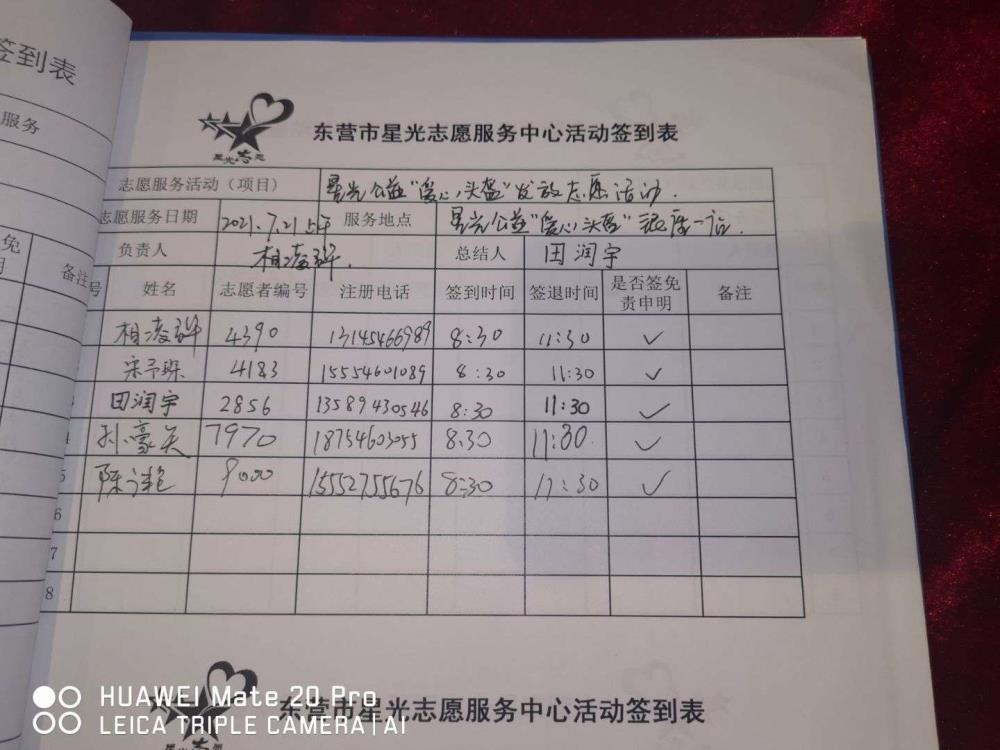 签到表
服务
免
明
备注
星光志愿
东营市星光志愿服务中心活动签到表
志愿服务活动（项目） 星光公益“爱心头盔”发放志愿活动.
志愿服务日期 2021.7.21 服务地点 星光公益“爱心头盔”
负责人 相凌 总结人 田润宇
号 姓名 志愿者编号 注册电话 签到时间 签退时间 是否签免责申明 备注
相凌 4390 13145466989 8:30 11:30 ✓
宋予琛 4183 15554601089 8:30 11:30 ✓
田润宇 2856 13589430546 8:30 11:30 ✓
4 孙豪 7970 18754603055 8:30 11:30 ✓
5 陈 9000 15552755676 8:30 11:30 ✓
6
7
8
东营市星光志愿服务中心活动签到表
HUAWEI Mate 20 Pro
LEICA TRIPLE CAMERA | AI